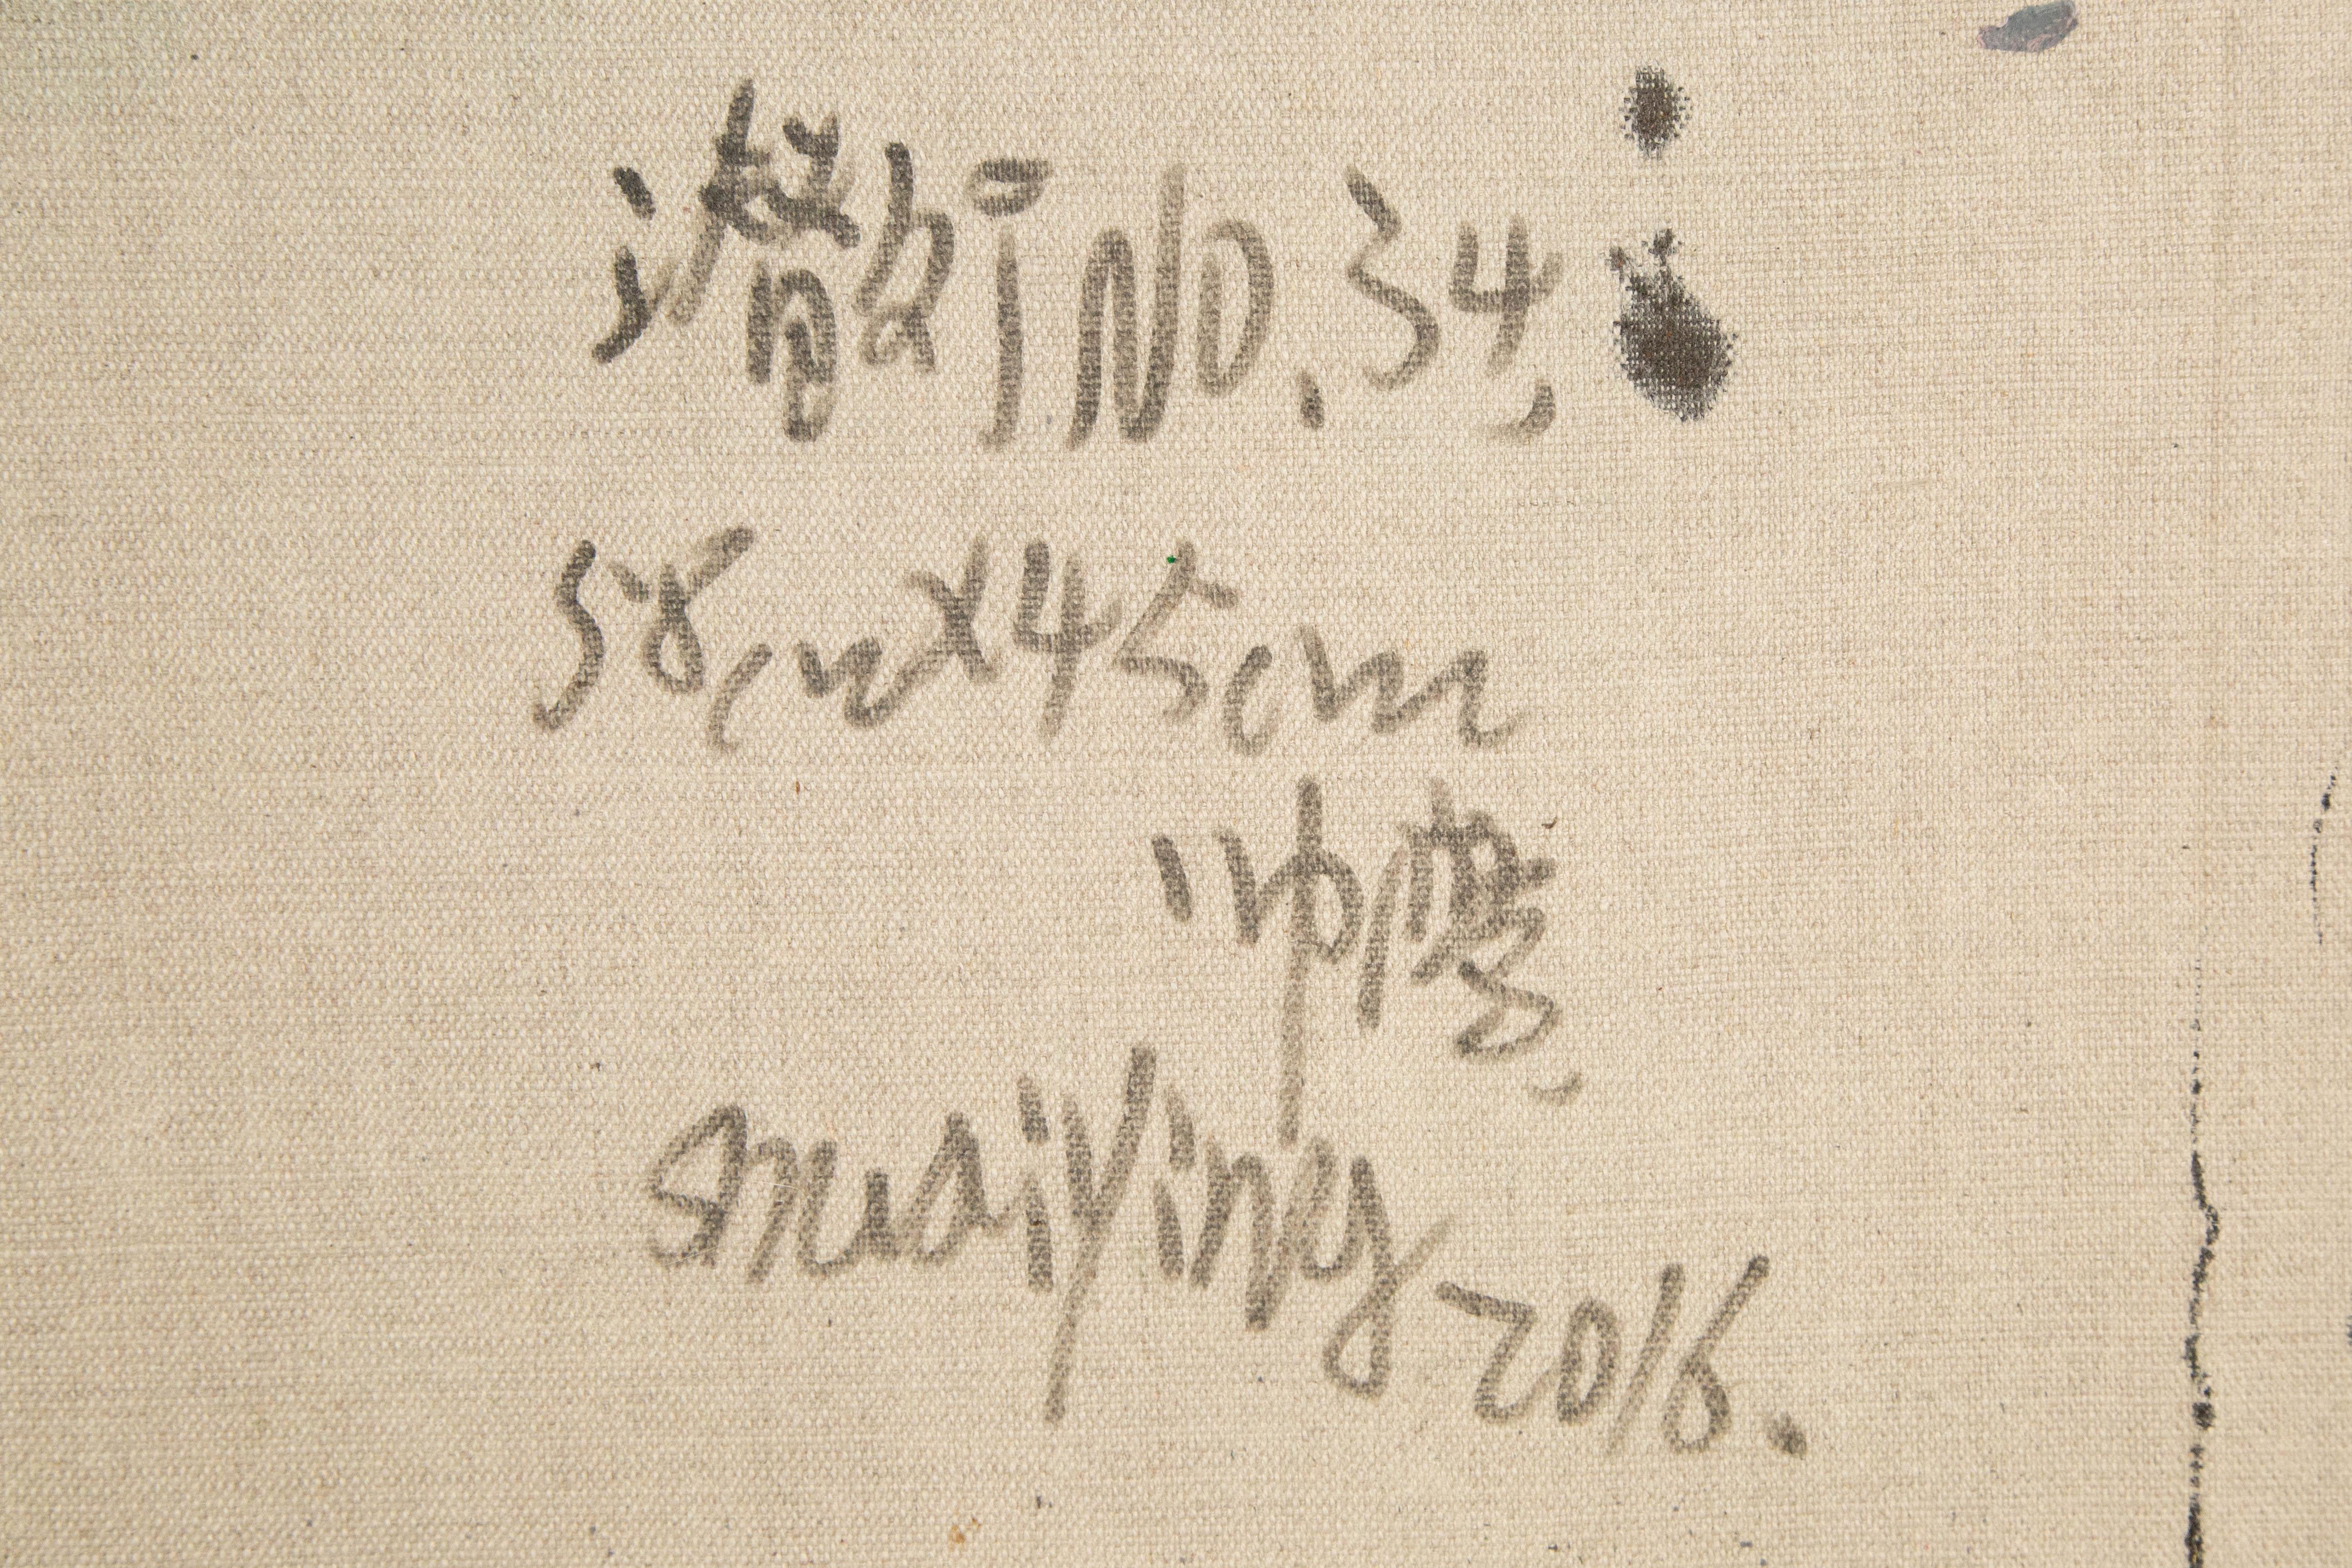 潜行 NO.34,
58cm×45cm
帅鹰,
shuaiying 2016.